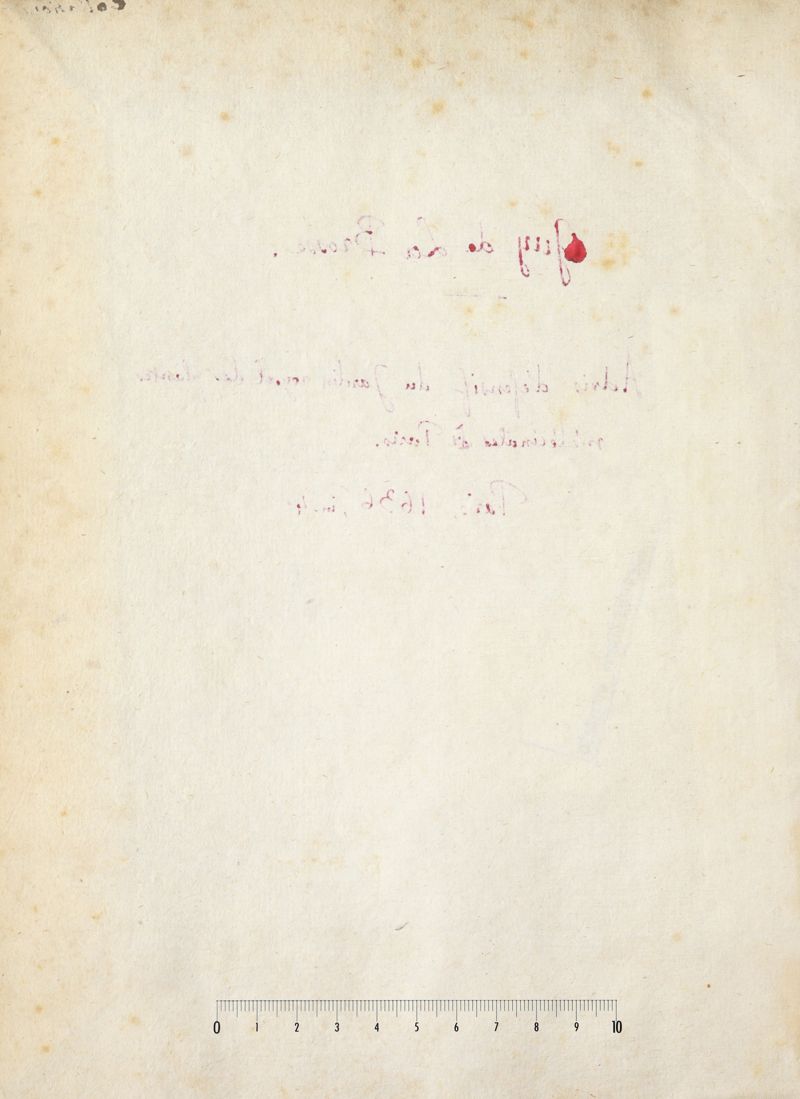 Guy de La Brosse.
Advis défensif du Jardin royal des plantes
médécinales à Paris.
Paris, 1636, in-4
0 1 2 3 4 5 6 7 8 9 10